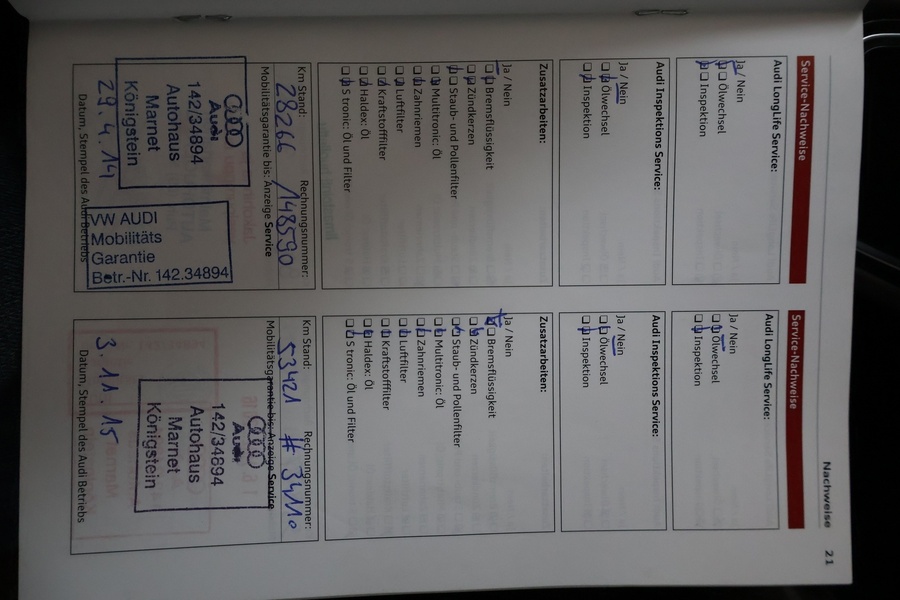 Nachweise 21
Service-Nachweise
Audi LongLife Service:
Ja / Nein
Ölwechsel
Inspektion
Audi Inspektions Service:
Ja / Nein
Ölwechsel
Inspektion
Zusatzarbeiten:
Ja / Nein
Bremsflüssigkeit
Zündkerzen
Staub- und Pollenfilter
Multitronic: Öl
Zahnriemen
Luftfilter
Kraftstofffilter
Haldex: Öl
S tronic: Öl und Filter
Km Stand: Rechnungsnummer:
28266 148590
Mobilitätsgarantie bis: Anzeige Service
Audi
142/34894
Autohaus
Marnet
Königstein
29.4.14
VW AUDI
Mobilitäts
Garantie
Betr.-Nr. 142.34894
Datum, Stempel des Audi Betriebs
Service-Nachweise
Audi LongLife Service:
Ja / Nein
Ölwechsel
Inspektion
Audi Inspektions Service:
Ja / Nein
Ölwechsel
Inspektion
Zusatzarbeiten:
Ja / Nein
Bremsflüssigkeit
Zündkerzen
Staub- und Pollenfilter
Multitronic: Öl
Zahnriemen
Luftfilter
Kraftstofffilter
Haldex: Öl
S tronic: Öl und Filter
Km Stand: Rechnungsnummer:
53421 # 34110
Mobilitätsgarantie bis: Anzeige Service
Audi
142/34894
Autohaus
Marnet
Königstein
3.11.15
Datum, Stempel des Audi Betriebs